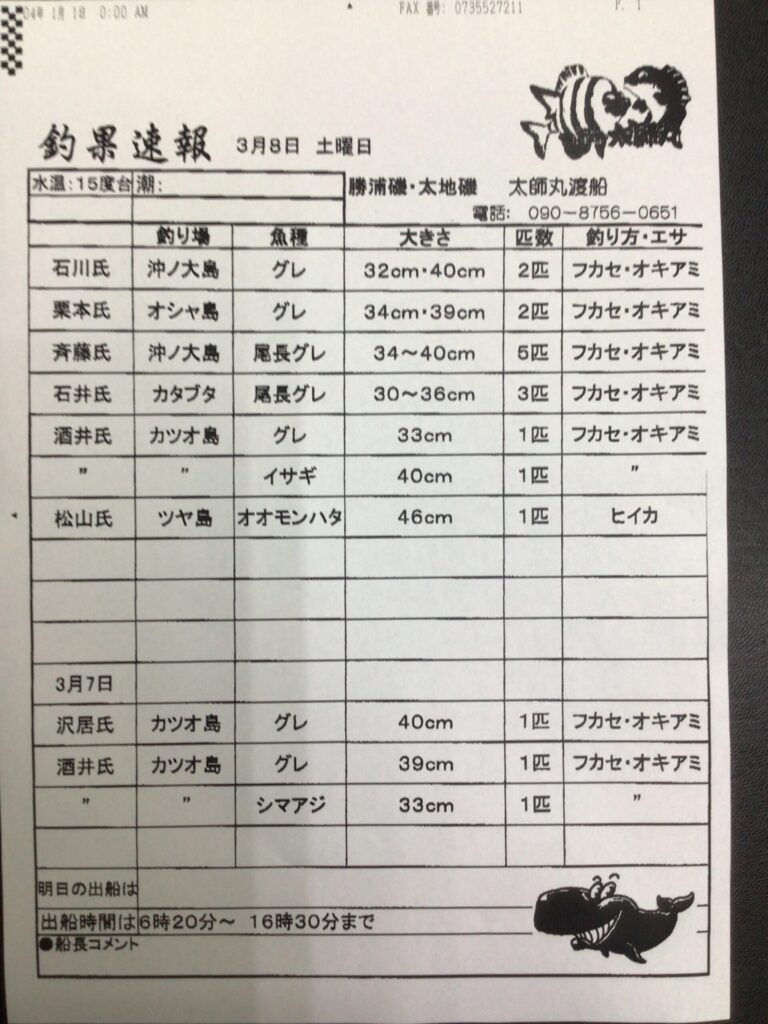 04年 1月 1日 0:00 AM FAX 番号: 0735527211 P. 1
釣果速報 3月8日 土曜日
水温:15度台 潮: 勝浦磯・太地磯 太師丸渡船
電話: 090-8756-0651
釣り場 魚種 大きさ 匹数 釣り方・エサ
石川氏 沖ノ大島 グレ 32cm・40cm 2匹 フカセ・オキアミ
栗本氏 オシャ島 グレ 34cm・39cm 2匹 フカセ・オキアミ
斉藤氏 沖ノ大島 尾長グレ 34～40cm 5匹 フカセ・オキアミ
石井氏 カタブタ 尾長グレ 30～36cm 3匹 フカセ・オキアミ
酒井氏 カツオ島 グレ 33cm 1匹 フカセ・オキアミ
〃 〃 イサギ 40cm 1匹 〃
松山氏 ツヤ島 オオモンハタ 46cm 1匹 ヒイカ
3月7日
沢居氏 カツオ島 グレ 40cm 1匹 フカセ・オキアミ
酒井氏 カツオ島 グレ 39cm 1匹 フカセ・オキアミ
〃 〃 シマアジ 33cm 1匹 〃
明日の出船は
出船時間は6時20分～ 16時30分まで
●船長コメント